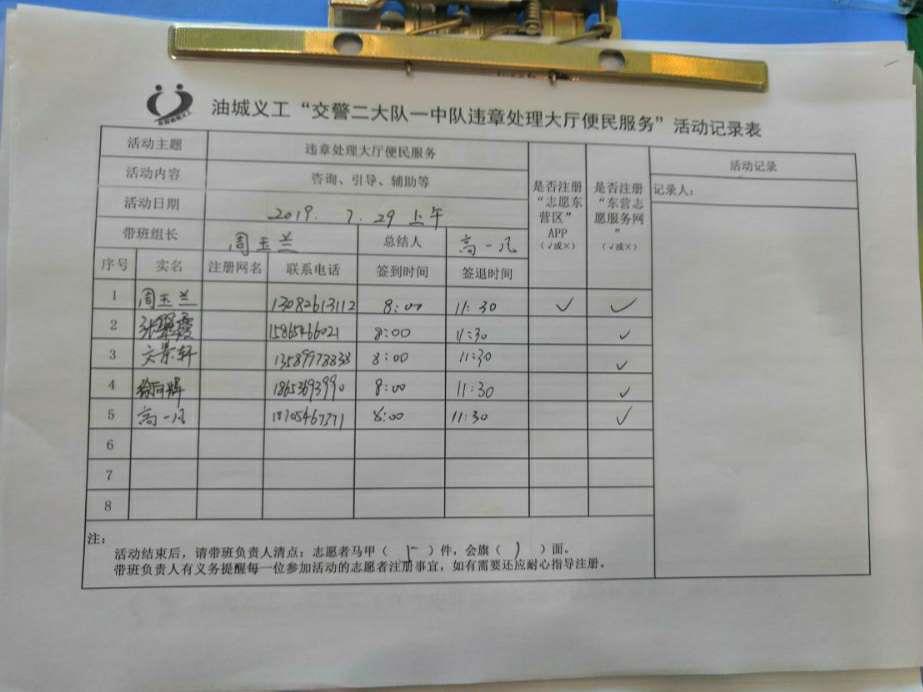 油城义工“交警二大队一中队违章处理大厅便民服务”活动记录表
活动主题 违章处理大厅便民服务
活动内容 咨询、引导、辅助等
活动日期 2019. 7. 29 上午
带班组长 周玉兰 总结人 高一凡
序号 实名 注册网名 联系电话 签到时间 签退时间 是否注册“志愿东营区”APP（√或×） 是否注册“东营志愿服务网”（√或×）
活动记录
记录人：
1 周玉兰 13082613112 8:00 11:30 √ √
2 15865466021 8:00 11:30 √
3 13589978833 8:00 11:30 √
4 8:00 11:30 √
5 高一凡 8:00 11:30 √
6
7
8
注：
活动结束后，请带班负责人清点：志愿者马甲（ ）件，会旗（ 1 ）面。
带班负责人有义务提醒每一位参加活动的志愿者注册事宜，如有需要还应耐心指导注册。